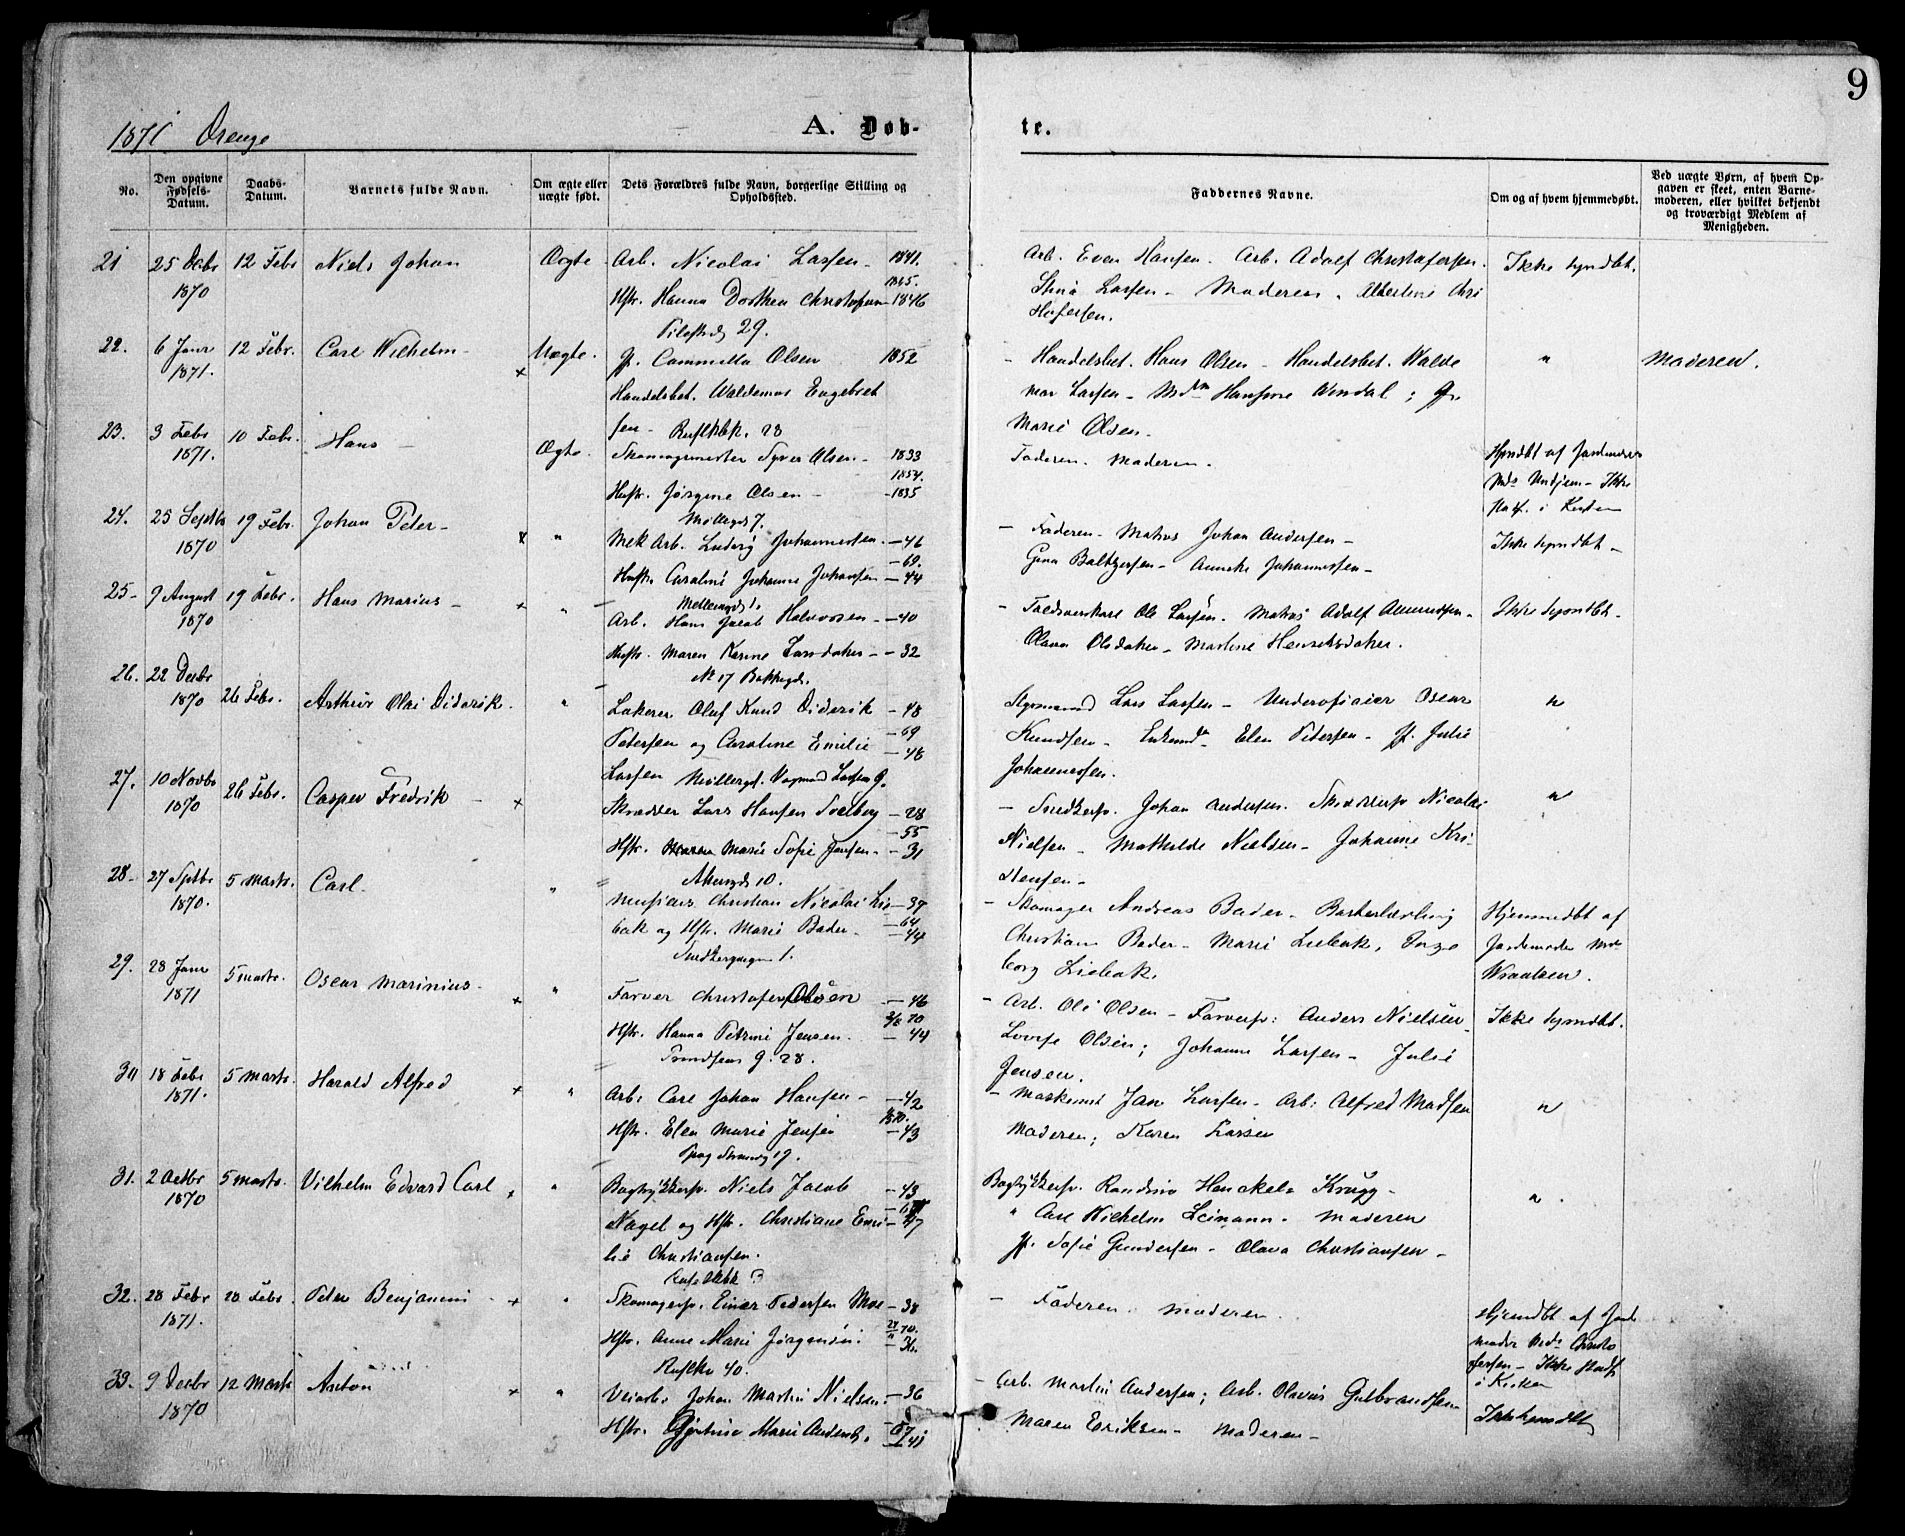 9
1871. Drenge
A. Døb-
te.
No.
Den opgivne Fødsels-Datum.
Daabs-Datum.
Barnets fulde Navn.
Om ægte eller uægte født.
Dets Forældres fulde Navn, borgerlige Stilling og Opholdssted.
Faddernes Navne.
Om og af hvem hjemmedøbt.
Ved uægte Børn, af hvem Opgaven er skeet, enten Barnemoderen, eller hvilket bekjendt og troværdigt Medlem af Menigheden.
21 25 Decbr 12 Febr Niels Johan Ægte Arb. Nicolai Larsen - 1841.
1870 1865.
Hstr. Hanna Dorthea Christofersen 1846
Pilestrd 29.
Arb. Even Hansen. Arb. Adolf Christofersen. Ikke hjmdbt.
Larsen - Moderen. Albertine Chri
stofersen.
22. 6 Janr 12 Febr. Carl Wilhelm - Uægte. P. Cammilla Olsen 1852
1871. Handelsbet. Waldemar Engebret
sen - 28
- Handelsbet. Hans Olsen - Handelsbet. Walde " Moderen.
mar Larsen - Mdm Hansine ; P.
Marie Olsen.
23. 3 Febr 10 Febr. Hans - Ægte. Skomagermester Syver Olsen - 1833
1871. 1854.
Hustr. Jørgine Olsen - 1835
Møllergd 7.
Faderen. Moderen. Hjmdbt af Jordmoder
- Ikke
i Kirken
24. 25 Septbr 19 Febr. Johan Peter - x " Mek Arb. Ludvig Johannessen - 46
1870 - 69.
Hustr. Caroline Johanne Johansen - 44
- Faderen - Matros Johan Andersen - Ikke hjmdbt -
Gina Baltzersen - Anneke Johannessen -
25 - 9 August 19 Febr. Hans Marius - x " Arb. Hans Jacob Halvorsen - 40
1870
Hustr. Maren Karine Larsdater - 32
No 17 Bakkegd.
Ole Larsen. Matros Adolf Amundsen - Ikke hjmdbt -
Olava Olsdater - Martine Henriksdater.
26. 22 Decbr 26 Febr. Arthur Olai Diderik. " Lakerer Oluf Knud Diderik - 48
1870 - 69
Petersen og Caroline Emilie - 48
Larsen Møllergd.
Styrmand Lars Larsen - Underofficier Oscar "
Knudsen - Elen Pedersen - P. Julie
Johannessen.
27. 10 Novbr 26 Febr. Casper Fredrik - x Skrædder Lars Hansen Solberg - 28
1870 - 55
Hstr. Marie Sofie Jensen - 31
Akersgd 10.
- Snedkersv. Johan Andersen. Skræddersv Nicolai "
Nielsen - Mathilde Nielsen - Johanne Kri
stensen -
28 - 27 Septbr 5 Marts. Carl - " Musicus. Christian Nicolai Lie - 37
1870. - 64
bak og Hstr. Marie Bader - - 44
1.
- Skomager Andreas Bader - Hjemmedbt af
Christian Bader - Marie Liebak, Inge Jordmoder
borg Liebak.
29. 28 Janr 5 Marts. Oscar Marinius - x " Farver Christofer Olsen - 46
1871 70
Hstr. Hanna Petrine Jensen. - 44
28.
- Arb. Ole Olsen - Farversv: Anders Nielsen - Ikke hjmdbt.
Lovise Olsen; Johanne Larsen - Julie
Jensen.
30 18 Febr 5 Marts. Harald Alfred x " Arb: Carl Johan Hansen - - 42
1871. 1870.
Hstr. Elen Marie Jensen - 43
- Maskinist Jan Larsen - Arb: Alfred Madsen "
Moderen; Karen Larsen
31. 2 Octbr 5 Marts. Vilhelm Edvard Carl x " Bogtrykkersv. Niels Jacob - 43
1870
Nagel og Hstr. Christiane Emi - 47
lie Christiansen.
Bogtrykkersv. Henckels Krugg - "
" Carl Wilhelm Leimann. Moderen
P. Sofie Gundersen - Olava Christiansen -
32. 28 Febr 28 Febr. Peter Benjamin - x " Skomagersv. Einar Pedersen Moe - 38
1871. 70.
Hstr. Anne Marie Jørgensen. 36.
40.
- Faderen. Moderen. Hjemdbt af Jord
moder Christo
fersen - Ikke
i Kirken
33. 9 Decbr 12 Marts Anton x " Veiarb. Johan Martin Nielsen. - 36
1870 67
Hstr. Marie Anders. - 41
- Arb. Martin Andersen; Arb. Olavus Gulbrandsen Ikke hjemdbt
Maren Eriksen - Moderen -